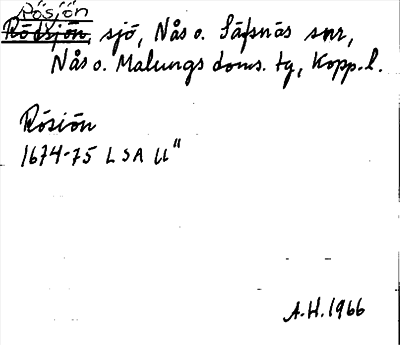 Rösjön
Rödsjön, sjö, Nås o. Säfsnäs snr,
Nås o. Malungs doms. tg, Kopp. l.
Rösiön
1674-75 LSA U"
A.H. 1966